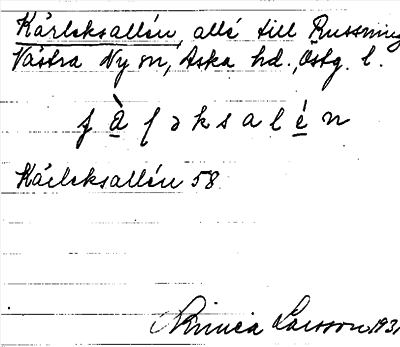 Kärleksallén, allé till Russning
Västra Ny sn, Aska hd., Östg. l.
Kärleksallén 58
Linnea Larsson 193